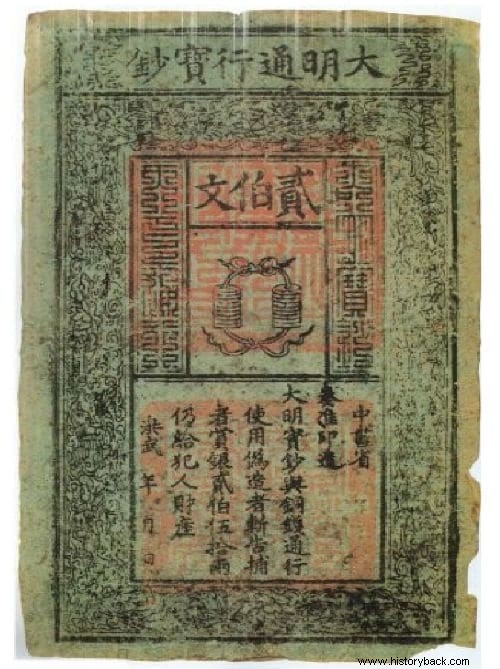 大明通行寶鈔
貳伯文
中書省
奏准印造
大明寶鈔與銅錢通行
使用僞造者斬告捕
者賞銀貳伯伍拾兩
仍給犯人財產
洪武 年 月 日
www.historyback.com